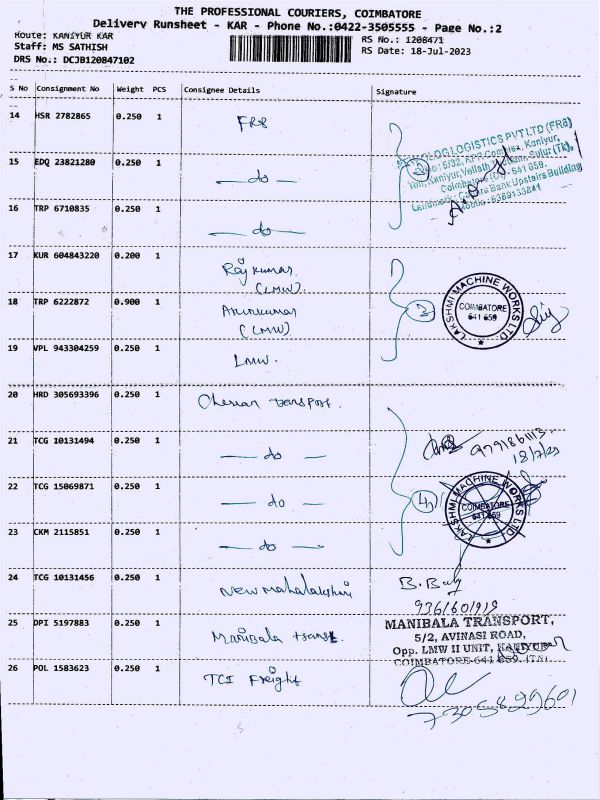 THE PROFESSIONAL COURIERS, COIMBATORE
Delivery Runsheet - KAR - Phone No.:0422-3505555 - Page No.:2
Route: KANIYUR KAR
RS No.: 1208471
Staff: MS SATHISH
RS Date: 18-Jul-2023
DRS No.: DCJB120847102
S No Consignment No Weight PCS Consignee Details Signature
14 HSR 2782865 0.250 1 FR8
15 EDQ 23821280 0.250 1 — do —
16 TRP 6710835 0.250 1 — do —
LOGISTICS PVT LTD (FR8)
Complex, Kaniyur,
Sulur (TK),
Coimbatore 641 659.
Landmark: Canara Bank Upstairs Building
17 KUR 604843220 0.200 1 Raj kumar
(LMW).
18 TRP 6222872 0.900 1 Arunkumar
(LMW)
19 VPL 943304259 0.250 1 LMW.
3
LAKSHMI MACHINE WORKS LTD.
COIMBATORE
641 659
20 HRD 305693396 0.250 1 Cheran transport.
21 TCG 10131494 0.250 1 — do —
22 TCG 15069871 0.250 1 — do —
23 CKM 2115851 0.250 1 — do —
18/7/23
4
LAKSHMI MACHINE WORKS LTD.
COIMBATORE
641 659
24 TCG 10131456 0.250 1 New Mahalakshmi
9361601919
25 DPI 5197883 0.250 1 Manibala transt.
MANIBALA TRANSPORT,
5/2, AVINASI ROAD,
Opp. LMW II UNIT, KANIYUR
COIMBATORE-641 659. (TN).
26 POL 1583623 0.250 1 TCI Freight
7305899601